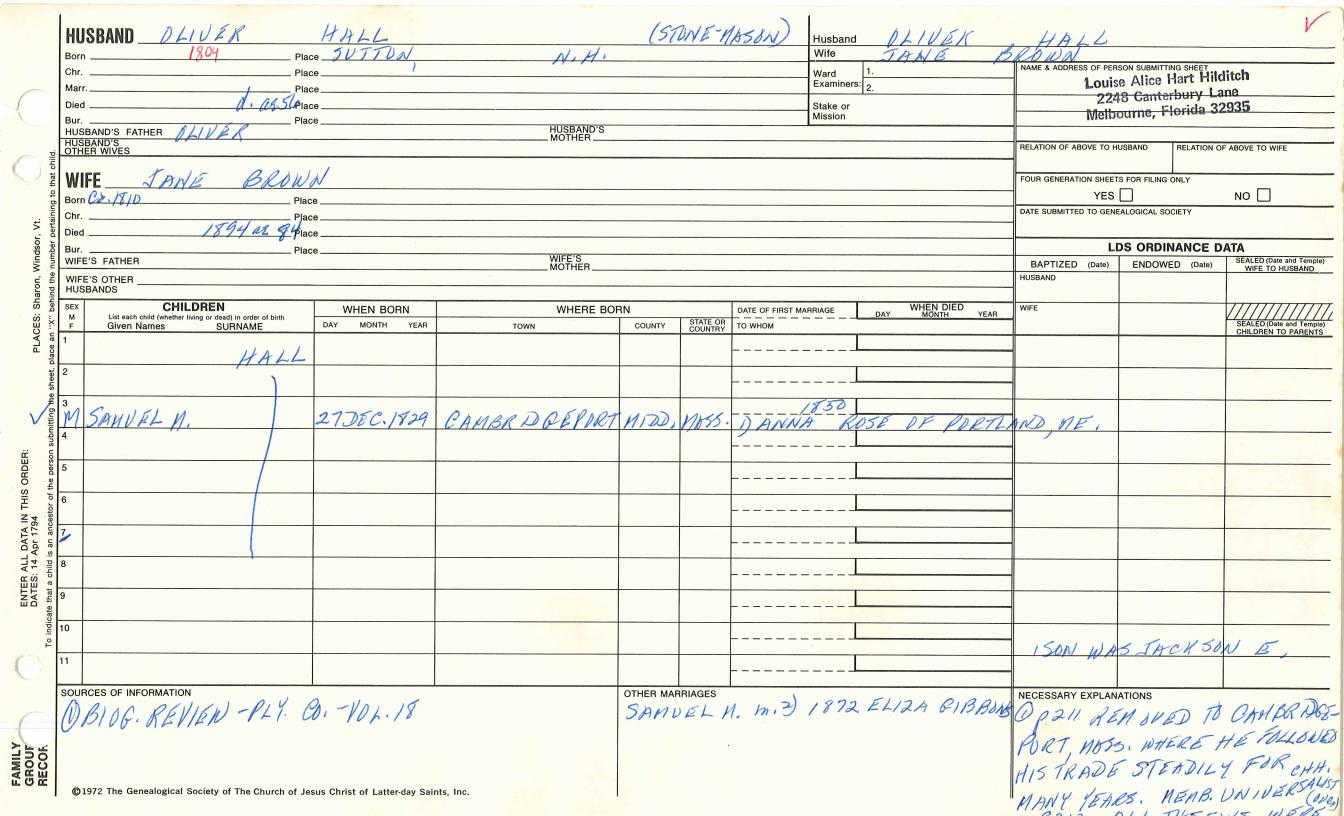 HUSBAND OLIVER HALL (STONE-MASON)
Born 1804 Place SUTTON, N.H.
Chr. Place
Marr. Place
Died d. ae 56 Place
Bur. Place
HUSBAND'S FATHER OLIVER HUSBAND'S MOTHER
HUSBAND'S OTHER WIVES
Husband OLIVER HALL
Wife JANE BROWN
Ward Examiners: 1.
2.
Stake or Mission
NAME & ADDRESS OF PERSON SUBMITTING SHEET
Louise Alice Hart Hilditch
2248 Canterbury Lane
Melbourne, Florida 32935
RELATION OF ABOVE TO HUSBAND RELATION OF ABOVE TO WIFE
FOUR GENERATION SHEETS FOR FILING ONLY
YES NO
DATE SUBMITTED TO GENEALOGICAL SOCIETY
WIFE JANE BROWN
Born Ca. 1810 Place
Chr. Place
Died 1894 ae 84 Place
Bur. Place
WIFE'S FATHER WIFE'S MOTHER
WIFE'S OTHER HUSBANDS
LDS ORDINANCE DATA
BAPTIZED (Date) ENDOWED (Date) SEALED (Date and Temple) WIFE TO HUSBAND
HUSBAND
WIFE
SEALED (Date and Temple) CHILDREN TO PARENTS
SEX M F
CHILDREN
List each child (whether living or dead) in order of birth
Given Names SURNAME
WHEN BORN
DAY MONTH YEAR
WHERE BORN
TOWN COUNTY STATE OR COUNTRY
DATE OF FIRST MARRIAGE
TO WHOM
WHEN DIED
DAY MONTH YEAR
1
HALL
2
3
1850
M SAMUEL N. 27 DEC. 1829 CAMBRIDGEPORT MIDD. MASS. 1) ANNA ROSE OF PORTLAND, ME.
4
5
6
7
8
9
10
1 SON WAS JACKSON E.
11
SOURCES OF INFORMATION
① BIOG. REVIEW - PLY. CO. - VOL. 18
OTHER MARRIAGES
SAMUEL N. m. 2) 1872 ELIZA GIBBONS
NECESSARY EXPLANATIONS
① p211 REMOVED TO CAMBRIDGE-
PORT, MASS. WHERE HE FOLLOWED
HIS TRADE STEADILY FOR
MANY YEARS. MEMB. UNIVERSALIST CHH.
(over)
©1972 The Genealogical Society of The Church of Jesus Christ of Latter-day Saints, Inc.
PLACES: Sharon, Windsor, Vt.
ENTER ALL DATA IN THIS ORDER:
DATES: 14 Apr 1794
To indicate that a child is an ancestor of the person submitting the sheet, place an "X" behind the number pertaining to that child.
FAMILY
GROUP
RECOR